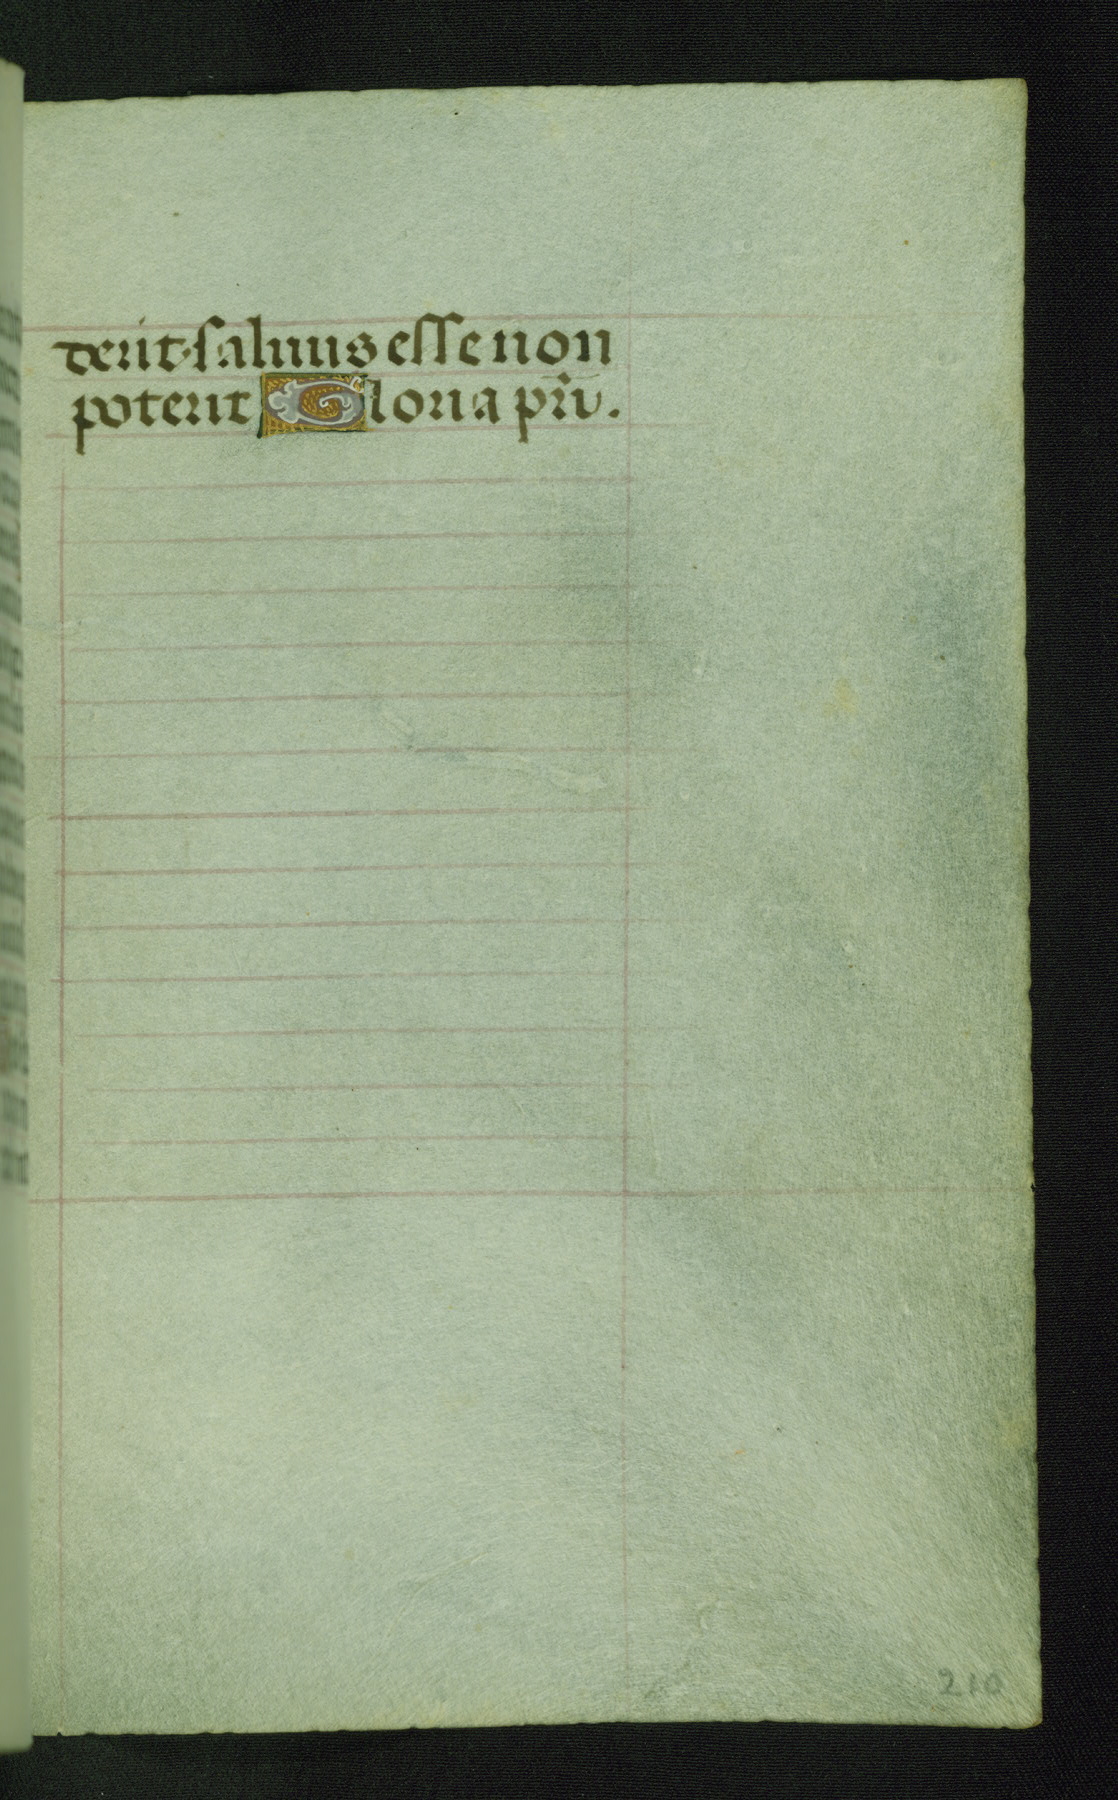 derit·saluus esse non
poterit Gloria pr̃i.
210